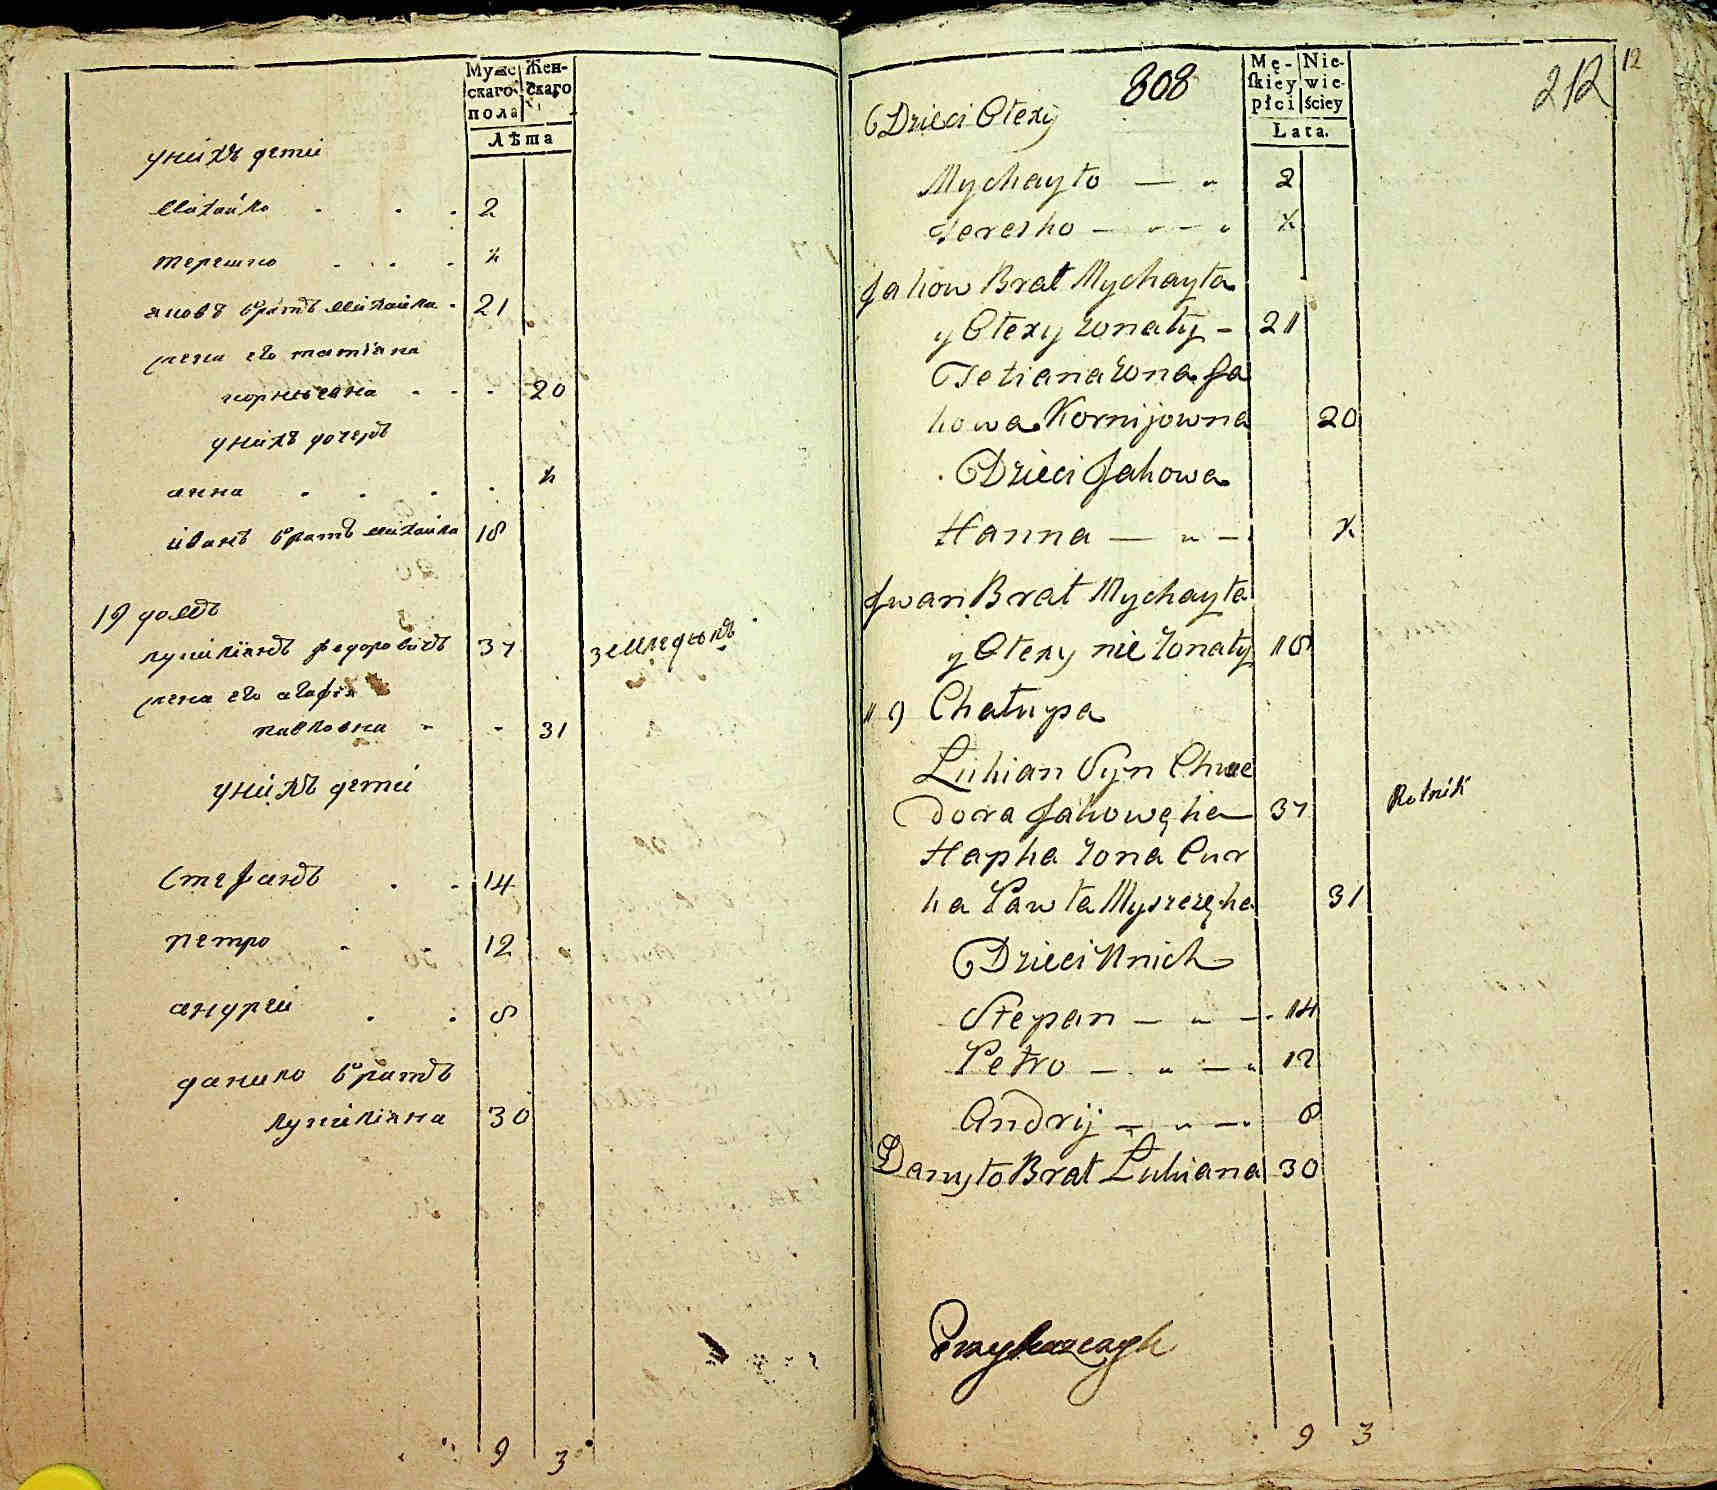 Муже Жен-
скаго скаго
пола
Лѣта
унихъ дети
Михайло 2
терешко ½
яковъ братъ Михайла 21
жена его татіяна
корнѣевна 20
унихъ дочерь
анна ½
иванъ братъ михайла 18
19 домъ
лукиліянъ федоровичъ 37 земледѣлецъ
жена его агафія
павловна 31
унихъ дети
Стефанъ 14
петро 12
андрей 8
данило братъ
лукиліяна 30
9 3
808
212
12
Mę- Nie-
skiey wie-
płci ściey
Lata.
Dzieci Ołexy
Mychayło — „ 2
Teresko — „ — „ ½
Jakow Brat Mychayła
y Ołexy żonaty – 21
Tetiana żona Ja
kowa Kornijowna 20
Dzieci Jakowa
Hanna — „ — ½
Jwan Brat Mychayła
y Ołexy nie żonaty 18
19 Chałupa
Łukian Syn Chwe
dora Jakowęka 37 Rolnik
Hapka żona Cur
ka Pawła 31
Dzieci Unich
Stepan — „ — 14
Petro — „ — „ 12
Andrij — „ — 8
Danyło Brat Łukiana 30
9 3